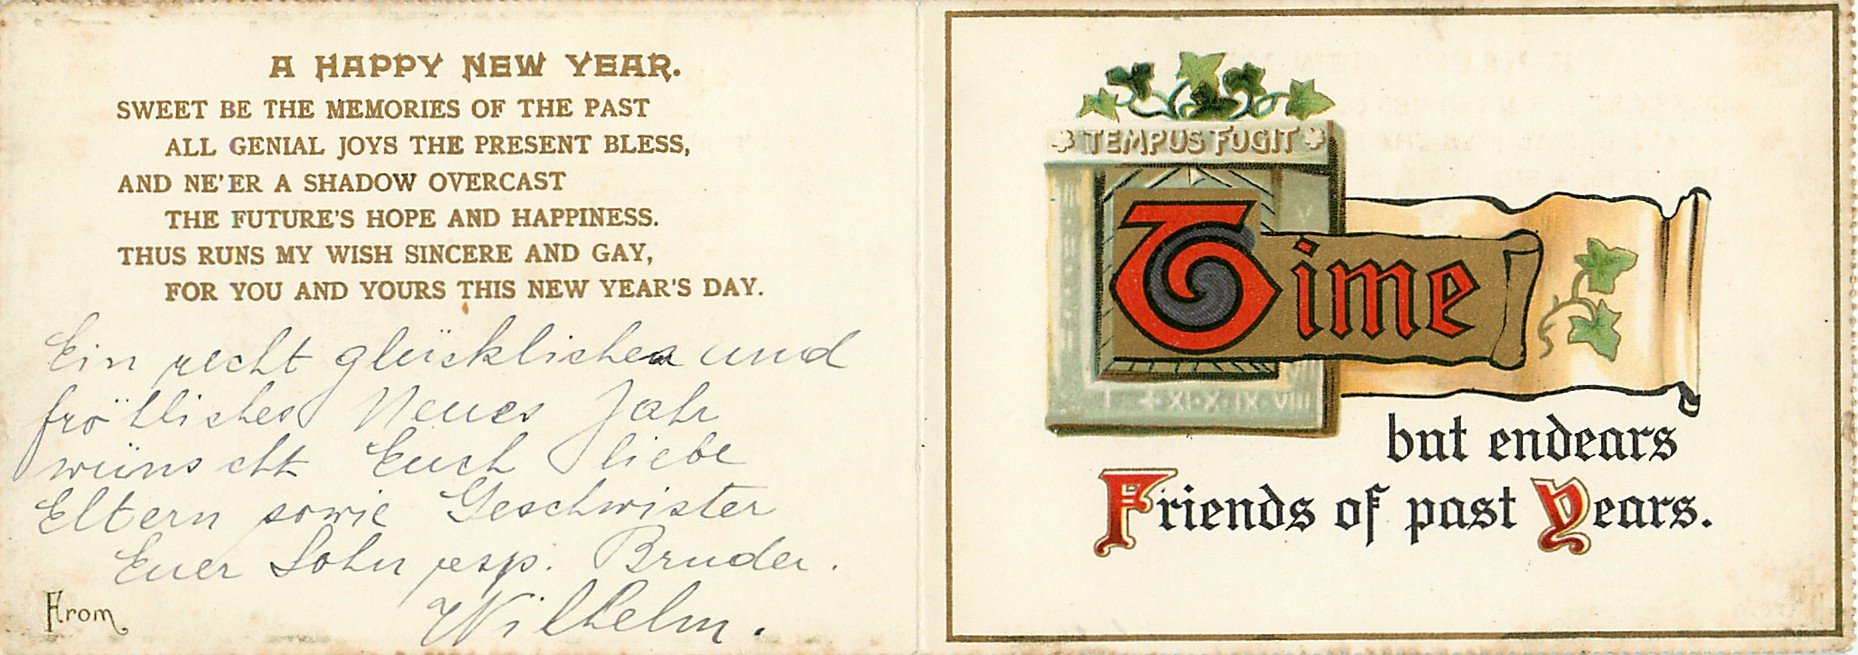 A HAPPY NEW YEAR.
SWEET BE THE MEMORIES OF THE PAST
ALL GENIAL JOYS THE PRESENT BLESS,
AND NE'ER A SHADOW OVERCAST
THE FUTURE'S HOPE AND HAPPINESS.
THUS RUNS MY WISH SINCERE AND GAY,
FOR YOU AND YOURS THIS NEW YEAR'S DAY.
Ein recht glückliches und
fröhliches Neues Jahr
wünscht Euch liebe
Eltern sowie Geschwister
Euer Sohn resp. Bruder.
Wilhelm.
From
TEMPUS FUGIT
V
VII
XI·X·IX·VIII
Time
but endears
Friends of past Years.